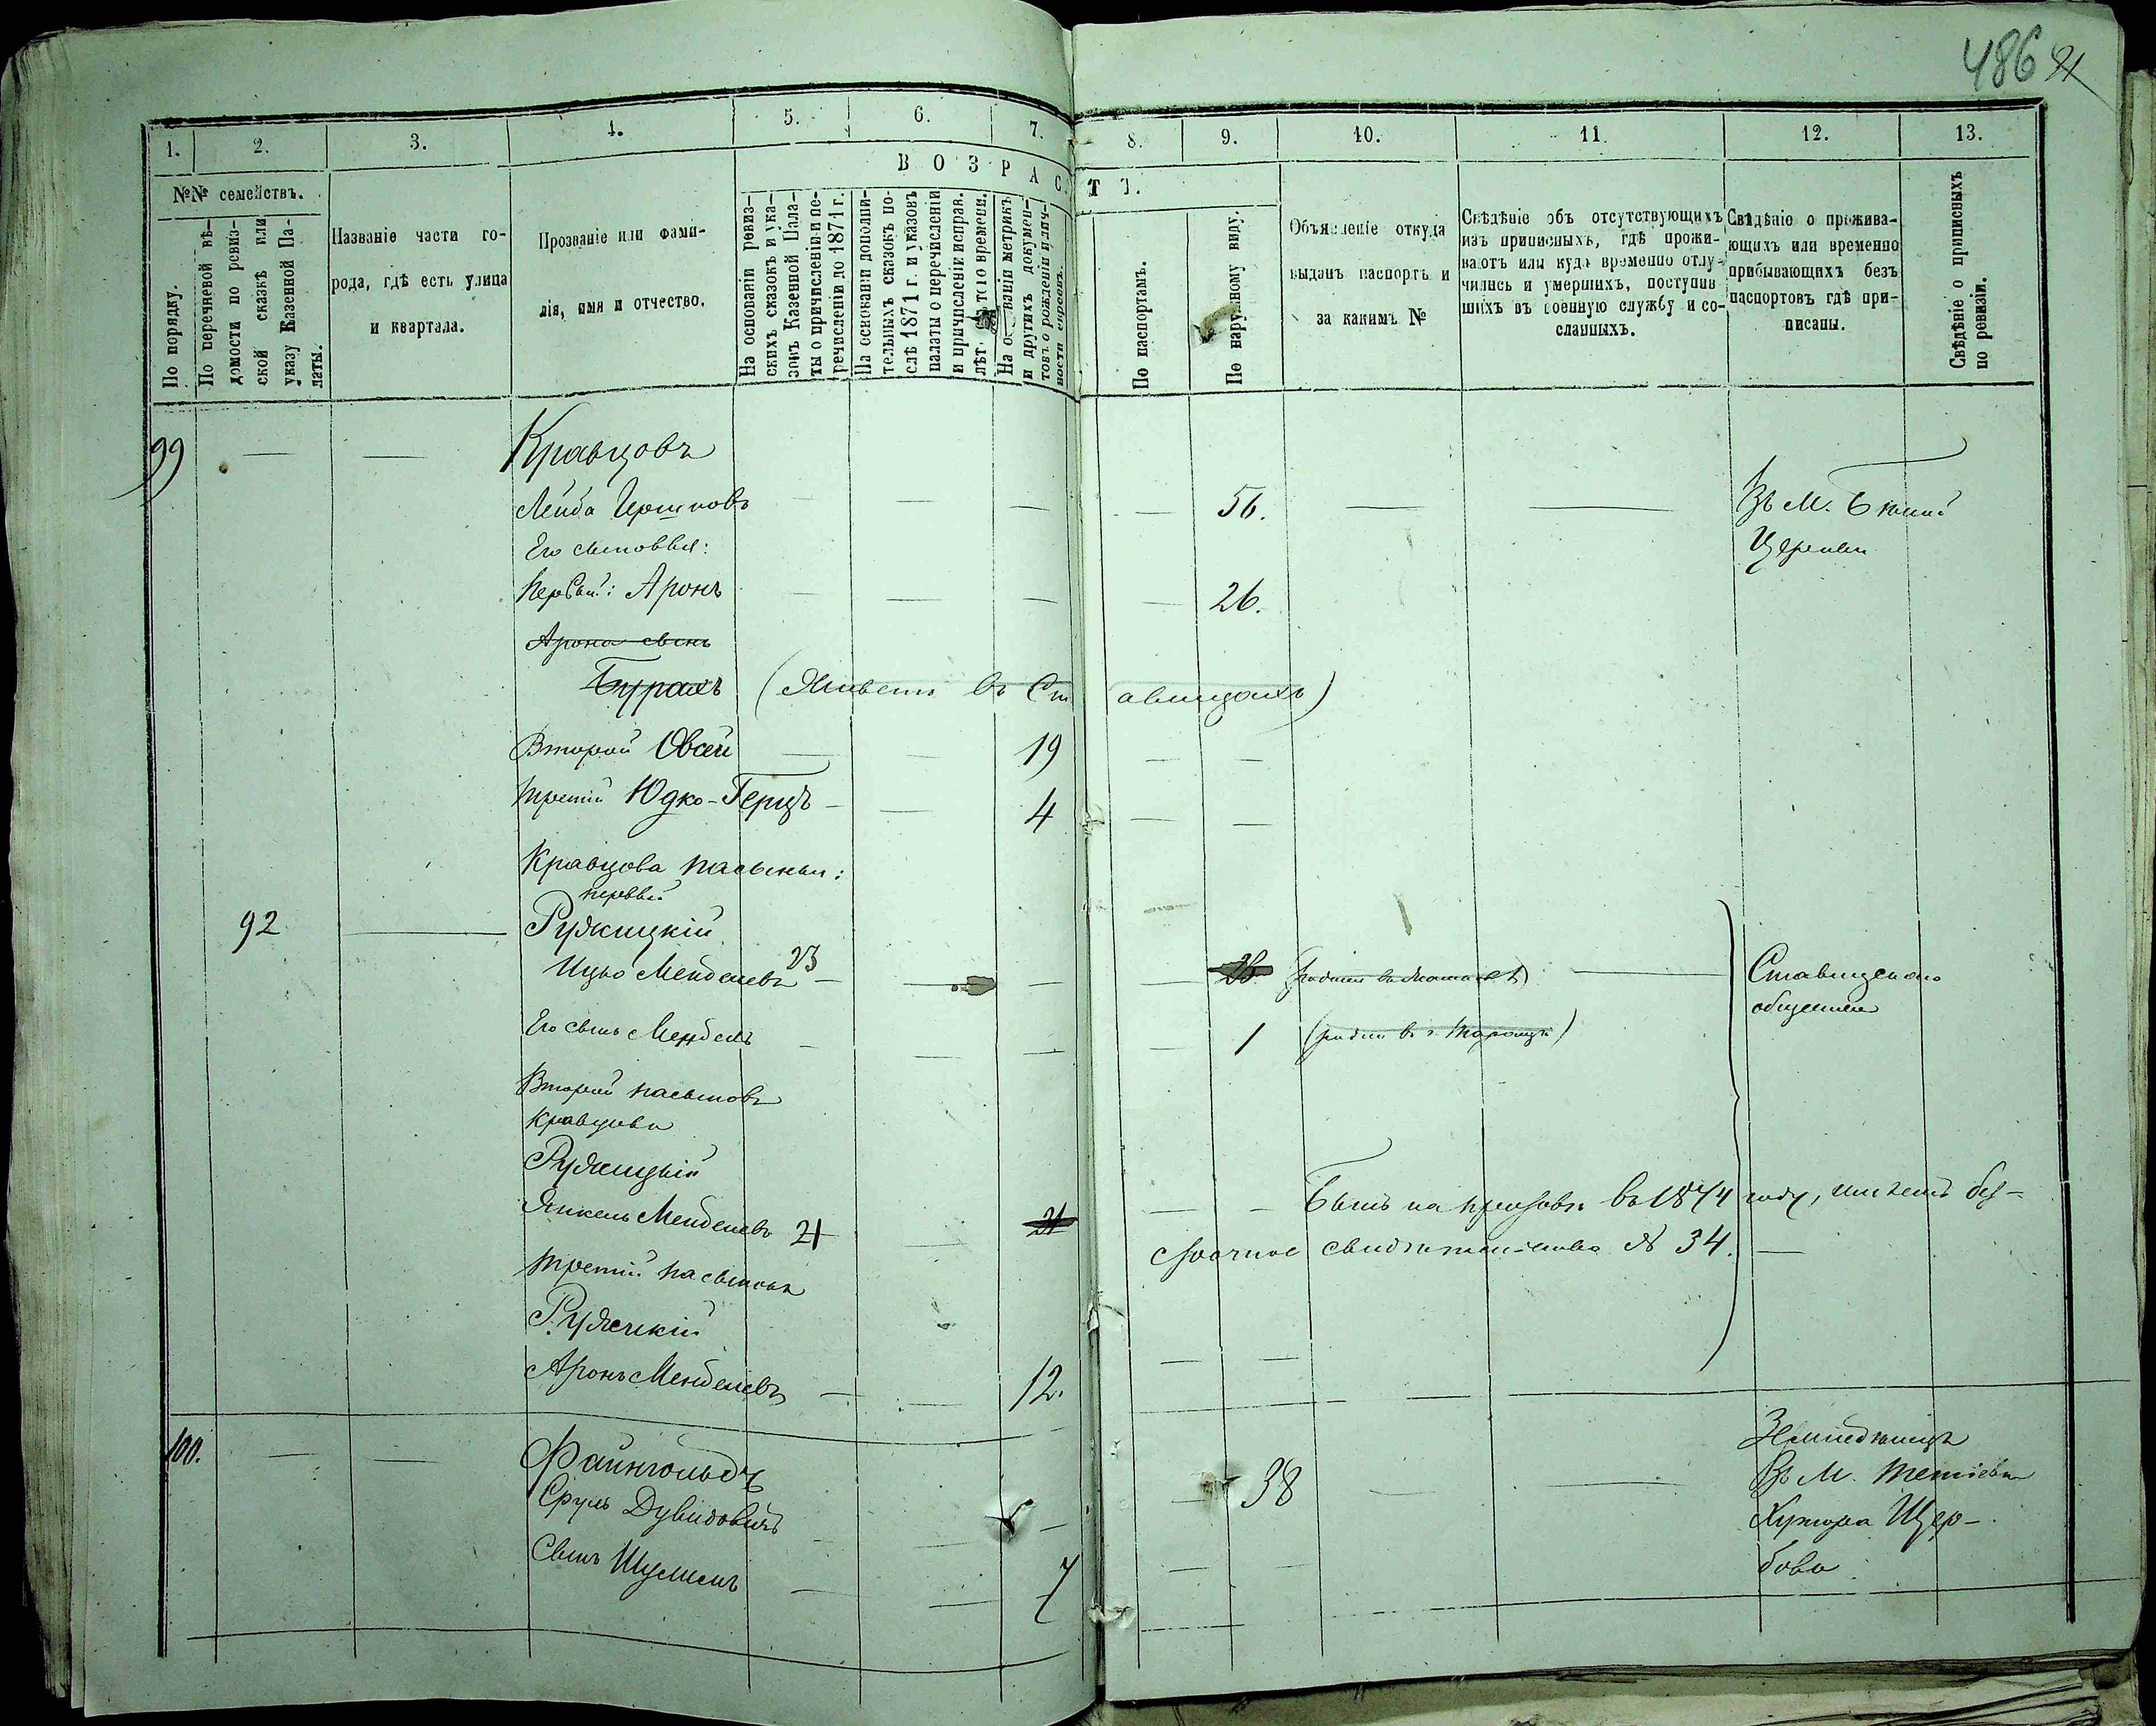 486 91
1. 2. 3. 4. 5. 6. 7. 8. 9. 10. 11 12. 13.
№№ семействъ.
ВОЗРАСТЪ.
По порядку.
По перечневой вѣ-
домости по ревиз-
ской сказкѣ или
указу Казенной Па-
латы.
Названіе части го-
рода, гдѣ есть улица
и квартала.
Прозваніе или фами-
лія, имя и отчество.
На основаніи ревиз-
скихъ сказокъ и ука-
зовъ Казенной Пала-
ты о причисленіи и пе-
речисленіи до 1871 г.
На основаніи дополни-
тельныхъ сказокъ по-
слѣ 1871 г. и указовъ
палаты о перечисленіи
и причисленіе исправ.
лѣт по времени.
На основаніи метрикъ
и другихъ докумен-
товъ о рожденіи и лич-
ности евреевъ.
По паспортамъ.
По наружному виду.
Объясненіе откуда
выданъ паспортъ и
за какимъ №
Свѣдѣніе объ отсутствующихъ
изъ приписныхъ, гдѣ прожи-
ваютъ или куда временно отлу-
чились и умершихъ, поступив-
шихъ въ военную службу и со-
сланныхъ.
Свѣдѣніе о прожива-
ющихъ или временно
прибывающихъ безъ
паспортовъ гдѣ при-
писаны.
Свѣдѣніе о приписныхъ
по ревизіи.
99 — — Кравцовъ
Лейба Иршковъ — — — — 56. — — Въ М. Бѣлой
Его сыновья: Церкви
Первый: Аронъ — — — — 26.
Арона сынъ
Бурахъ (Живетъ въ Ставищахъ)
Второй Овсей — — 19 — —
Третій Юдко-Герцъ — — 4 — —
Кравцова пасынки:
первый
92 — Ружицкій
Ицко Менделевъ 23 — — — — 28 — Ставищскаго
Его сынъ Мендель — — — — 1 (родил. въ г. Таращѣ) общества
Второй пасынокъ
Кравцова
Ружицкій
Янкель Менделевъ 21 — 21 — — Былъ на призывѣ въ 1874 году, имѣетъ без-
срочное свидѣтельство № 34. —
Третій пасынокъ
Ружицкій
Аронъ Менделевъ — — 12. — — — —
100. — — Файнгольдъ Земледѣлецъ
Сруль Дувидовичъ — — — — 38 — — Въ М. Тетіевѣ
Хутора Щер-
Сынъ Шулимъ — — 7 — — бова